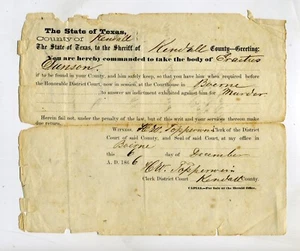 The State of Texas,
County of Kendall
The State of Texas, to the Sheriff of Kendall County—Greeting:
You are hereby commanded to take the body of Erastus
if to be found in your County, and him safely keep, so that you have him when required before
the Honorable District Court, now in session, at the Courthouse in Boerne
to answer an indictment exhibited against him for Murder
Herein fail not, under the penalty of the law, but of this writ and your service thereon make
due return.
Witness, H.W. Toepperwein Clerk of the District
Court of said County, and Seal of said Court, at my office in
Boerne
this 6 day of December
A. D. 186
H.W. Toepperwein
Clerk District Court Kendall County.